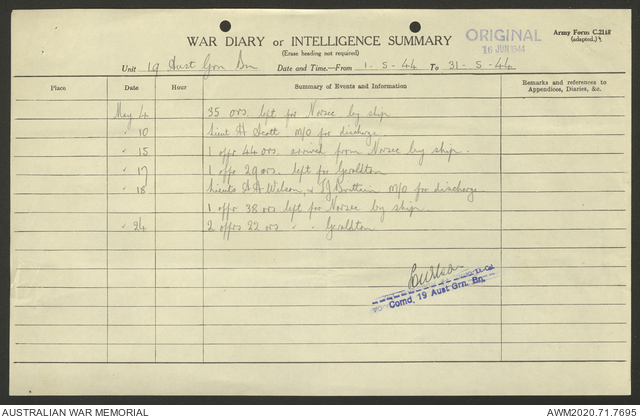 WAR DIARY or INTELLIGENCE SUMMARY
(Erase heading not required)
ORIGINAL
16 JUN 1944
Army Form C.2118
(adapted.)
Unit 19 Aust Grn Bn Date and Time.—From 1-5-44 To 31-5-44
Place Date Hour Summary of Events and Information Remarks and references to Appendices, Diaries, &c.
May 4 35 ors. left for Norsec by ship
" 10 Lieut H Scott m/o for discharge
" 15 1 offr 44 ors. arrived from Norsec by ship.
" 17 1 offr 29 ors. left for Geraldton
" 18 Lieuts A A Wilson, & LJ Brittain m/o for discharge
1 offr 38 ors left for Norsec by ship
" 24 2 offrs 22 ors. " " Geraldton
Lt. Col.
Comd. 19 Aust Grn. Bn.
AUSTRALIAN WAR MEMORIAL AWM2020.71.7695